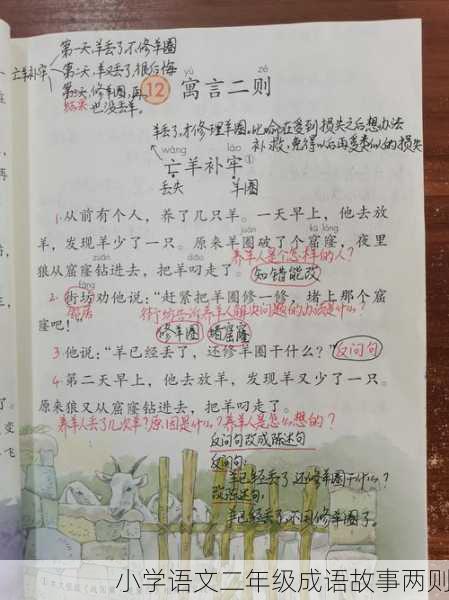 第一天,羊丢了,不修羊圈
亡羊补牢
第二天,羊又丢了,很后悔
第三天,修羊圈,再
结果 也没丢羊。
yù zé
12 寓言二则
羊丢了,才修理羊圈。比喻在受到损失之后想办法
补救,免得以后再受类似的损失
wáng láo
亡羊补牢①
丢失 羊圈
1.从前有个人,养了几只羊。一天早上,他去放
juàn kū lóng
羊,发现羊少了一只。原来羊圈破了个窟窿,夜里
养羊人是个怎样的人?
zuān diāo
狼从窟窿钻进去,把羊叼走了。
知错能改
fáng
2.街坊劝他说:“赶紧把羊圈修一修,堵上那个窟
邻居
街坊告诉养羊人解决问题的办法是什么?
窿吧!”
修羊圈 堵窟窿
3.他说:“羊已经丢了,还修羊圈干什么?”
反问句
4.第二天早上,他去放羊,发现羊又少了一只。
原来狼又从窟窿钻进去,把羊叼走了。
养羊人丢了几次羊?原因是什么?养羊人是怎么想的?
反问句改成陈述句
反问句:
羊已经丢了,还修羊圈干什么?
改陈述句:
羊已经丢了,不用修羊圈了。
小学语文二年级成语故事两则